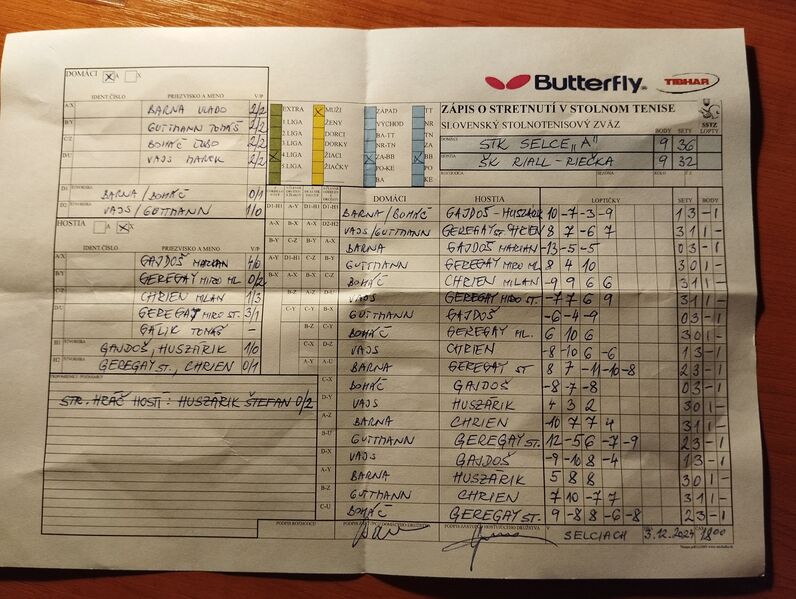 DOMÁCI X A X
IDENT. ČÍSLO PRIEZVISKO A MENO V/P
A/X BARNA VLADO 2/2
B/Y GUTTMANN TOMÁŠ 2/2
C/Z BOHÁČ ĽUBO 2/2
D/U VAJS MAREK 2/2
D1 ŠTVORHRA BARNA / BOHÁČ 0/1
D2 ŠTVORHRA VAJS / GUTTMANN 1/0
HOSTIA A X
IDENT. ČÍSLO PRIEZVISKO A MENO V/P
A/X GAJDOŠ MARIAN 4/0
B/Y GEREGAY MIRO ML. 0/2
C/Z CHRIEN MILAN 1/3
D/U GEREGAY MIRO ST. 3/1
GALIK TOMÁŠ -
H1 ŠTVORHRA GAJDOŠ, HUSZÁRIK 1/0
H2 ŠTVORHRA GEREGAY ST., CHRIEN 0/1
STR. HRÁČ HOSTI : HUSZÁRIK ŠTEFAN 0/2
EXTRA X MUŽI ZÁPAD TT
1 LIGA ŽENY VÝCHOD NR
2 LIGA DORCI BA-TT TN
3 LIGA DORKY TN-NR ZA
X 4 LIGA ŽIACI X ZA-BB X BB
5 LIGA ŽIAČKY PO-KE PO
BA KE
Butterfly TIBHAR
ZÁPIS O STRETNUTÍ V STOLNOM TENISE
SLOVENSKÝ STOLNOTENISOVÝ ZVÄZ SSTZ
BODY SETY LOPTY
DOMÁCI STK SELCE "A" 9 36
HOSTIA ŠK RIALL - RIEČKA 9 32
DOMÁCI HOSTIA LOPTIČKY SETY BODY
BARNA / BOHÁČ GAJDOŠ - HUSZÁRIK 10 -7 -3 -9 1 3 - 1
VAJS / GUTTMANN GEREGAY ST. CHRIEN 8 7 -6 7 3 1 1 -
BARNA GAJDOŠ MARIAN -13 -5 -5 0 3 - 1
GUTTMANN GEREGAY MIRO ML 8 4 10 3 0 1 -
BOHÁČ CHRIEN MILAN -9 9 6 6 3 1 1 -
VAJS GEREGAY MIRO ST. -7 7 6 9 3 1 1 -
GUTTMANN GAJDOŠ -6 -4 -9 0 3 - 1
BOHÁČ GEREGAY ML. 6 10 6 3 0 1 -
VAJS CHRIEN -8 -10 6 -6 1 3 - 1
BARNA GEREGAY ST. 8 7 -11 -10 -8 2 3 - 1
BOHÁČ GAJDOŠ -8 -7 -8 0 3 - 1
VAJS HUSZÁRIK 4 3 2 3 0 1 -
BARNA CHRIEN 10 7 -7 4 3 1 1 -
GUTTMANN GEREGAY ST. 12 -5 6 -7 -9 2 3 - 1
VAJS GAJDOŠ -9 -10 8 -4 1 3 - 1
BARNA HUSZÁRIK 5 8 8 3 0 1 -
GUTTMANN CHRIEN 7 10 -7 7 3 1 1 -
BOHÁČ GEREGAY ST. 9 -8 8 -6 -8 2 3 - 1
PODPIS ROZHODCU PODPIS ZÁSTUPCU DOMÁCEHO DRUŽSTVA PODPIS ZÁSTUPCU HOSŤUJÚCEHO DRUŽSTVA V SELCIACH 3.12.2024 18:00